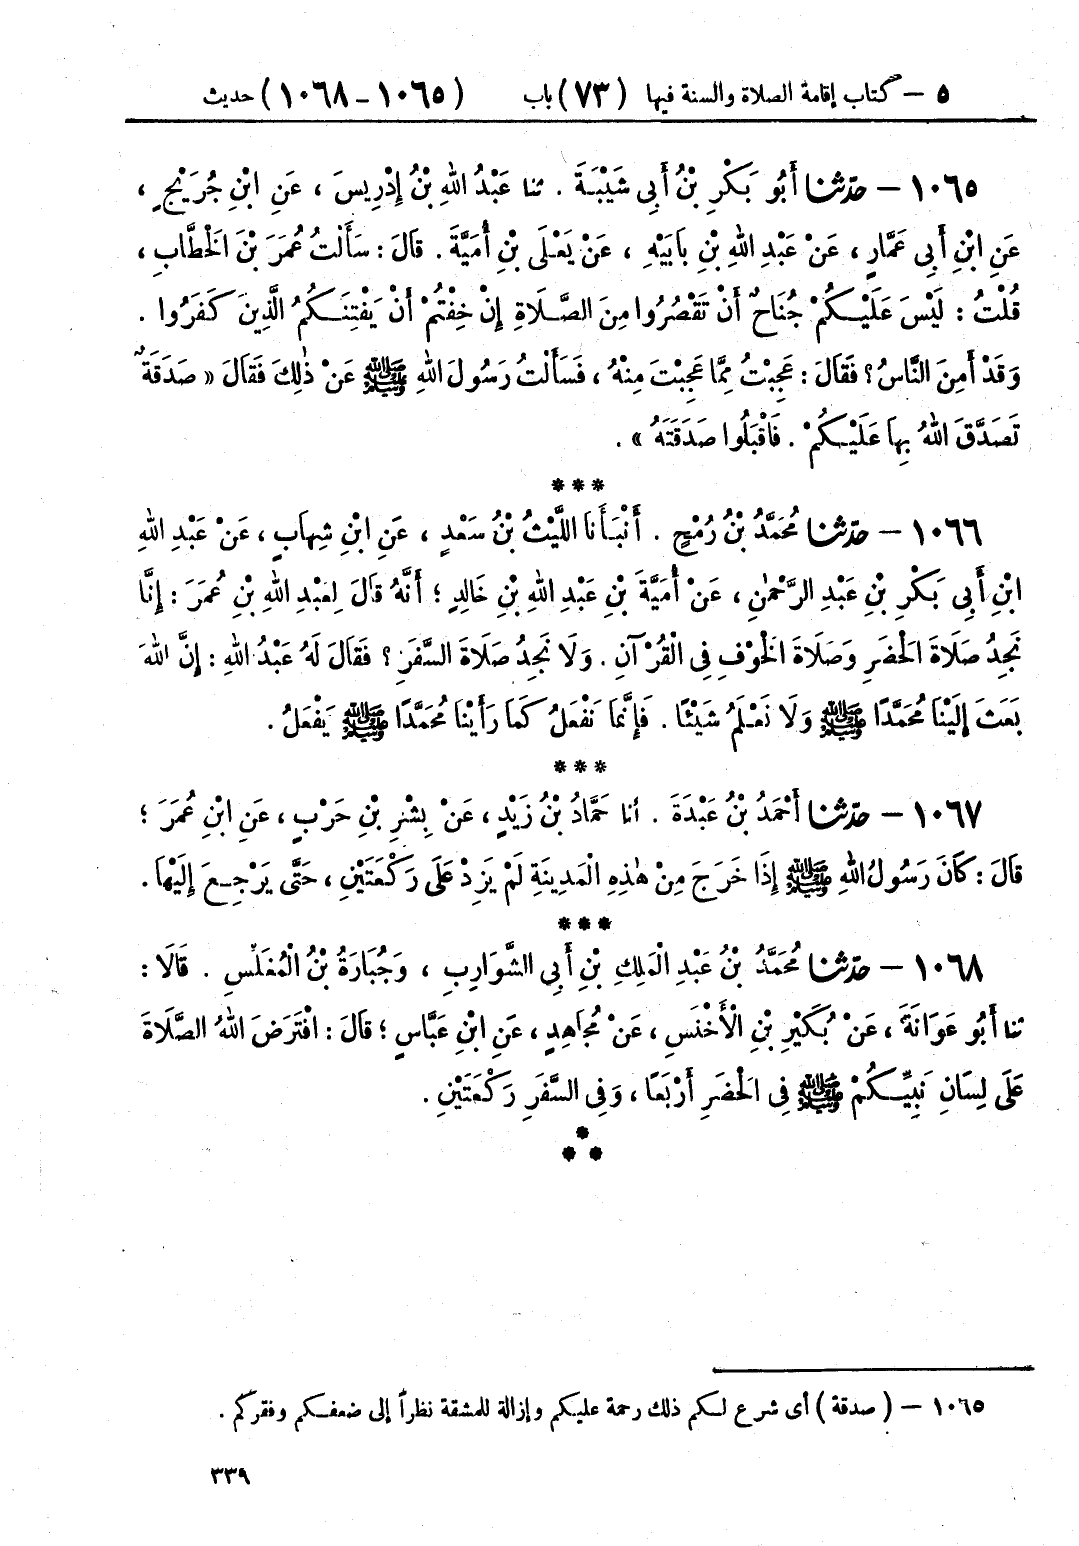 ٥ – كتاب إقامة الصلاة والسنة فيها (٧٣) باب (١٠٦٥ - ١٠٦٨) حديث
١٠٦٥ – حدّثنا أَبُو بَكْرِ بْنُ أَبِى شَيْبَةَ . ثنا عَبْدُ اللهِ بْنُ إِدْرِيسَ ، عَنِ ابْنِ جُرَيْجٍ ،
عَنِ ابْنِ أَبِى عَمَّارٍ ، عَنْ عَبْدِ اللهِ بْنِ بابَيْهِ ، عَنْ يَعْلَى بْنِ أُمَيَّةَ . قالَ : سَأَلْتُ عُمَرَ بْنَ الْخَطَّابِ ،
قُلْتُ : لَيْسَ عَلَيْكُمْ جُنَاحٌ أَنْ تَقْصُرُوا مِنَ الصَّلَاةِ إِنْ خِفْتُمْ أَنْ يَفْتِنَكُمُ الَّذِينَ كَفَرُوا .
وَقَدْ أَمِنَ النَّاسُ ؟ فَقَالَ : عَجِبْتُ مِمَّا عَجِبْتَ مِنْهُ ، فَسَأَلْتُ رَسُولَ اللهِ ﷺ عَنْ ذٰلِكَ فَقَالَ « صَدَقَةٌ
تَصَدَّقَ اللهُ بِهَا عَلَيْكُمْ . فَاقْبَلُوا صَدَقَتَهُ » .
***
١٠٦٦ – حدّثنا مُحَمَّدُ بْنُ رُمْحٍ . أَنْبَأَنا اللَّيْثُ بْنُ سَعْدٍ ، عَنِ ابْنِ شِهابٍ ، عَنْ عَبْدِ اللهِ
ابْنِ أَبِى بَكْرِ بْنِ عَبْدِ الرَّحْمٰنِ ، عَنْ أُمَيَّةَ بْنِ عَبْدِ اللهِ بْنِ خَالِدٍ ؛ أَنَّهُ قالَ لِعَبْدِ اللهِ بْنِ عُمَرَ : إِنَّا
نَجِدُ صَلَاةَ الْحَضَرِ وَصَلَاةَ الْخَوْفِ فِى الْقُرْآنِ . وَلَا نَجِدُ صَلَاةَ السَّفَرِ ؟ فَقَالَ لَهُ عَبْدُ اللهِ : إِنَّ اللهَ
بَعَثَ إِلَيْنَا مُحَمَّدًا ﷺ وَلَا نَعْلَمُ شَيْئًا . فَإِنَّمَا نَفْعَلُ كَمَا رَأَيْنَا مُحَمَّدًا ﷺ يَفْعَلُ .
***
١٠٦٧ – حدّثنا أَحْمَدُ بْنُ عَبْدَةَ . أنا حَمَّادُ بْنُ زَيْدٍ ، عَنْ بِشْرِ بْنِ حَرْبٍ ، عَنِ ابْنِ عُمَرَ ؛
قالَ : كَانَ رَسُولُ اللهِ ﷺ إِذَا خَرَجَ مِنْ هٰذِهِ الْمَدِينَةِ لَمْ يَزِدْ عَلَى رَكْعَتَيْنِ ، حَتَّى يَرْجِعَ إِلَيْهَا .
***
١٠٦٨ – حدّثنا مُحَمَّدُ بْنُ عَبْدِ الْمَلِكِ بْنِ أَبِى الشَّوَارِبِ ، وَجُبَارَةُ بْنُ الْمُغَلِّسِ . قَالَا :
ثنا أَبُو عَوَانَةَ ، عَنْ بُكَيْرِ بْنِ الْأَخْنَسِ ، عَنْ مُجَاهِدٍ ، عَنِ ابْنِ عَبَّاسٍ ؛ قالَ : افْتَرَضَ اللهُ الصَّلَاةَ
عَلَى لِسَانِ نَبِيِّكُمْ ﷺ فِى الْحَضَرِ أَرْبَعًا ، وَفِى السَّفَرِ رَكْعَتَيْنِ .
*
* *
١٠٦٥ – ( صدقة ) أى شرع لكم ذلك رحمة عليكم وإزالة للمشقة نظراً إلى ضعفكم وفقركم .
٣٣٩